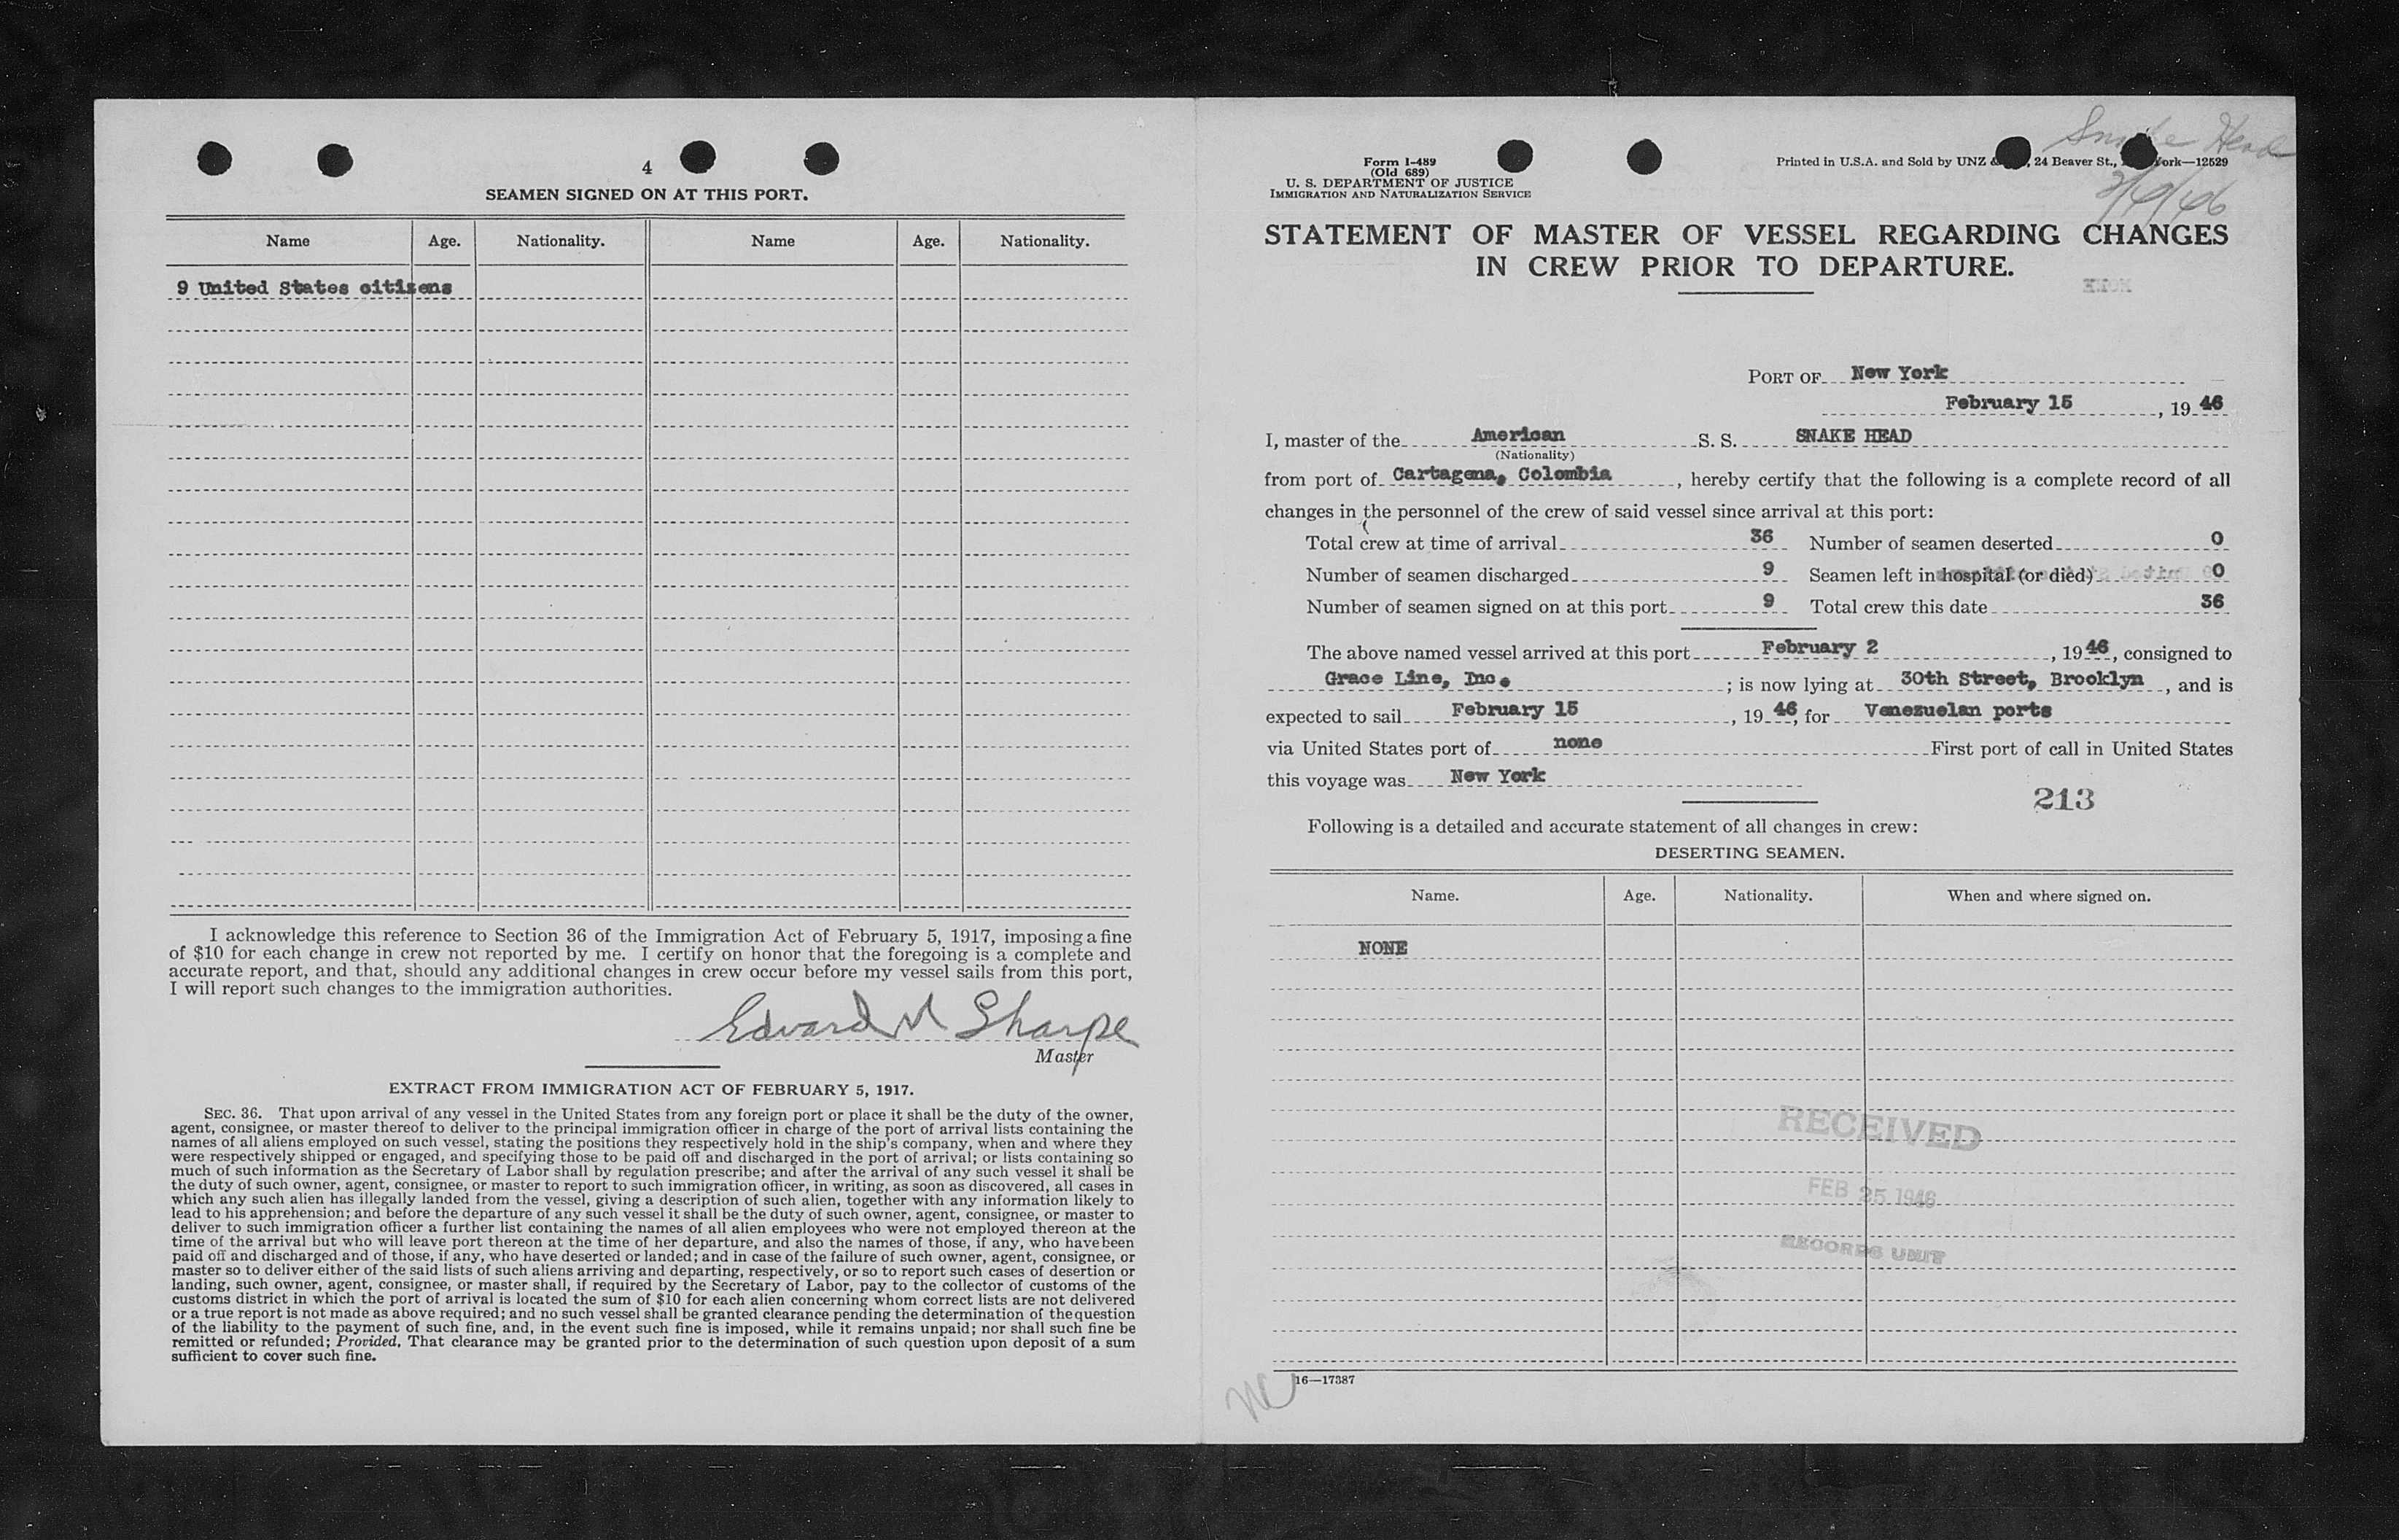 4
SEAMEN SIGNED ON AT THIS PORT.
Name Age. Nationality. Name Age. Nationality.
9 United States citizens
I acknowledge this reference to Section 36 of the Immigration Act of February 5, 1917, imposing a fine
of $10 for each change in crew not reported by me. I certify on honor that the foregoing is a complete and
accurate report, and that, should any additional changes in crew occur before my vessel sails from this port,
I will report such changes to the immigration authorities.
Edward M Sharpe
Master
EXTRACT FROM IMMIGRATION ACT OF FEBRUARY 5, 1917.
SEC. 36. That upon arrival of any vessel in the United States from any foreign port or place it shall be the duty of the owner,
agent, consignee, or master thereof to deliver to the principal immigration officer in charge of the port of arrival lists containing the
names of all aliens employed on such vessel, stating the positions they respectively hold in the ship's company, when and where they
were respectively shipped or engaged, and specifying those to be paid off and discharged in the port of arrival; or lists containing so
much of such information as the Secretary of Labor shall by regulation prescribe; and after the arrival of any such vessel it shall be
the duty of such owner, agent, consignee, or master to report to such immigration officer, in writing, as soon as discovered, all cases in
which any such alien has illegally landed from the vessel, giving a description of such alien, together with any information likely to
lead to his apprehension; and before the departure of any such vessel it shall be the duty of such owner, agent, consignee, or master to
deliver to such immigration officer a further list containing the names of all alien employees who were not employed thereon at the
time of the arrival but who will leave port thereon at the time of her departure, and also the names of those, if any, who have been
paid off and discharged and of those, if any, who have deserted or landed; and in case of the failure of such owner, agent, consignee, or
master so to deliver either of the said lists of such aliens arriving and departing, respectively, or so to report such cases of desertion or
landing, such owner, agent, consignee, or master shall, if required by the Secretary of Labor, pay to the collector of customs of the
customs district in which the port of arrival is located the sum of $10 for each alien concerning whom correct lists are not delivered
or a true report is not made as above required; and no such vessel shall be granted clearance pending the determination of the question
of the liability to the payment of such fine, and, in the event such fine is imposed, while it remains unpaid; nor shall such fine be
remitted or refunded; Provided, That clearance may be granted prior to the determination of such question upon deposit of a sum
sufficient to cover such fine.
Snake Head
Form I-489
(Old 689)
U. S. DEPARTMENT OF JUSTICE
IMMIGRATION AND NATURALIZATION SERVICE
Printed in U.S.A. and Sold by UNZ & 24 Beaver St., York—12529
STATEMENT OF MASTER OF VESSEL REGARDING CHANGES
IN CREW PRIOR TO DEPARTURE.
PORT OF New York
February 15, 19 46
I, master of the American S. S. SNAKE HEAD
(Nationality)
from port of Cartagena, Colombia, hereby certify that the following is a complete record of all
changes in the personnel of the crew of said vessel since arrival at this port:
Total crew at time of arrival 36 Number of seamen deserted 0
Number of seamen discharged 9 Seamen left in hospital (or died) 0
Number of seamen signed on at this port 9 Total crew this date 36
The above named vessel arrived at this port February 2, 19 46, consigned to
Grace Line, Inc.; is now lying at 30th Street, Brooklyn, and is
expected to sail February 15, 19 46, for Venezuelan ports
via United States port of none First port of call in United States
this voyage was New York
213
Following is a detailed and accurate statement of all changes in crew:
DESERTING SEAMEN.
Name. Age. Nationality. When and where signed on.
NONE
RECEIVED
FEB 25 1946
RECORDS UNIT
16—17387